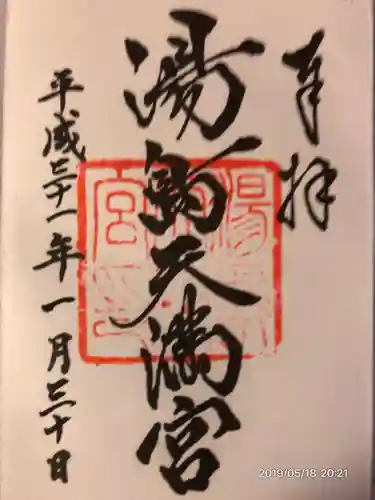 奉拝
湯島天満宮
平成三十一年一月三十日
2019/05/18 20:21